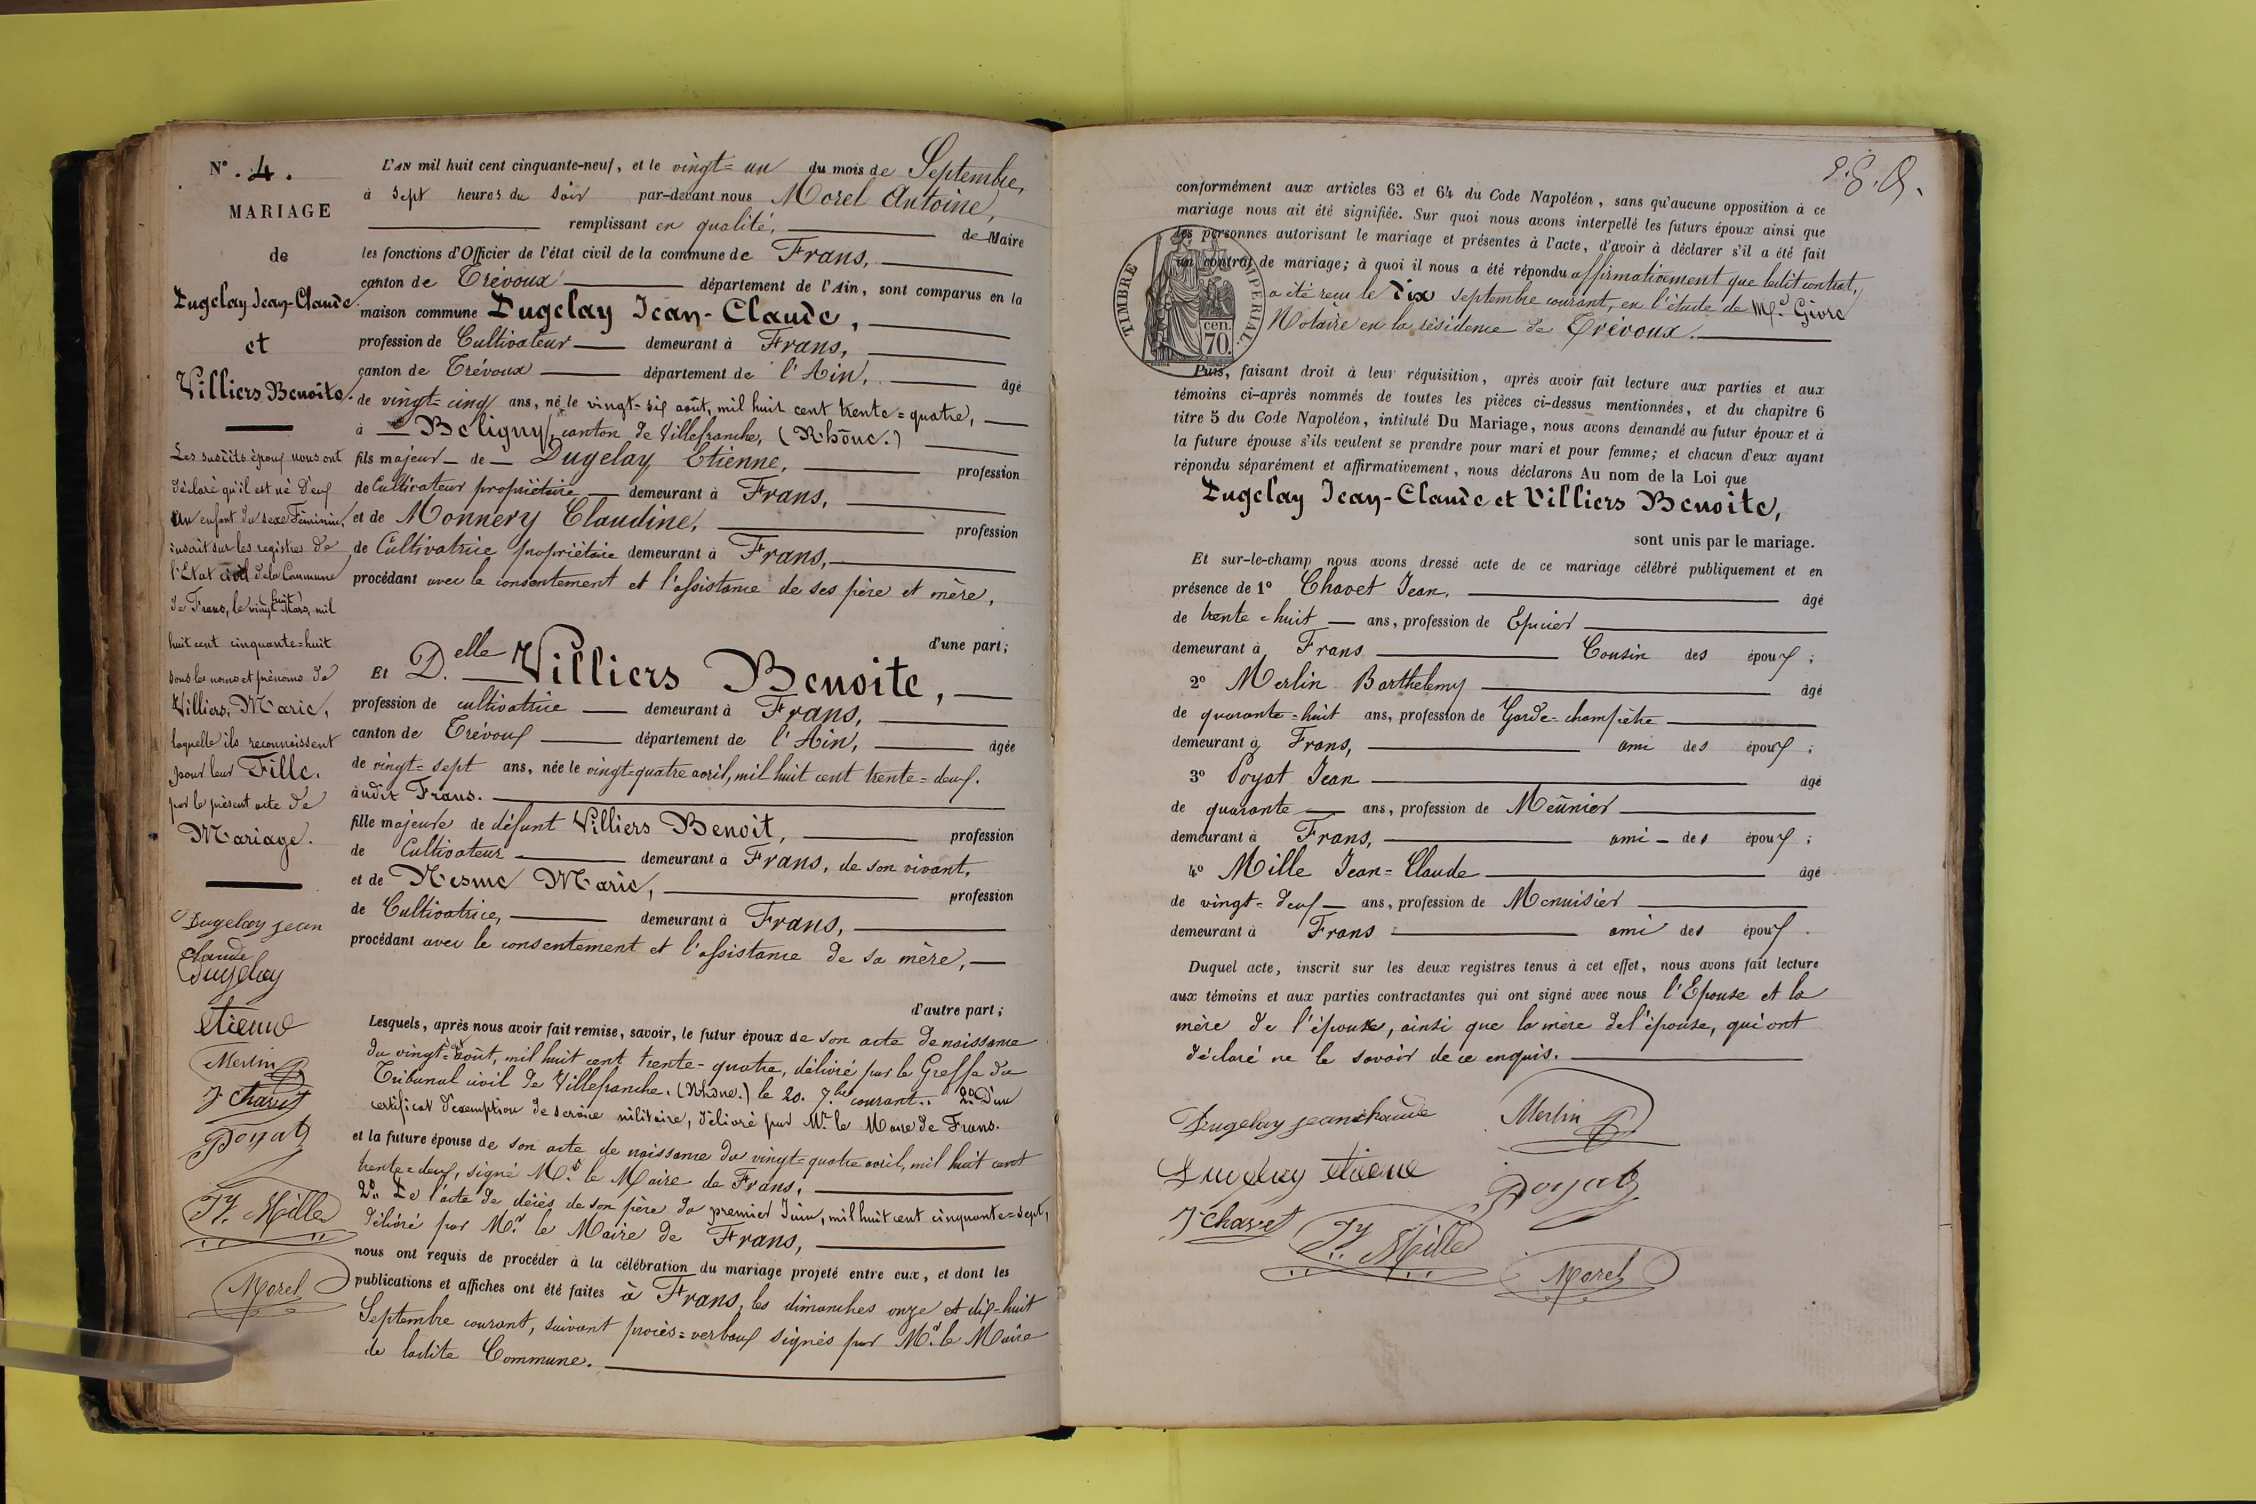 N° . 4 .
MARIAGE
de
Dugelay Jean-Claude
et
Villiers Benoite.
Les susdits époux nous ont
déclaré qu'il est né d'eux
un enfant du sexe Féminin,
inscrit sur les registres de
l'Etat civil de la Commune
de Frans, le vingt-huit Mars, mil
huit cent cinquante=huit
sous les noms et prénoms de
Villiers, Marie,
laquelle ils reconnaissent
pour leur Fille.
par le présent acte de
Mariage.
Dugelay jean
claude
Dugelay
etienne
Merlin
J. Chavet
Poyat
Jy. Mille
Morel
L'AN mil huit cent cinquante-neuf, et le vingt=un du mois de Septembre,
à sept heures du soir par-devant nous Morel Antoine,
remplissant en qualité, de Maire
les fonctions d'Officier de l'état civil de la commune de Frans,
canton de Trévoux département de l'Ain, sont comparus en la
maison commune Dugelay Jean-Claude,
profession de Cultivateur demeurant à Frans,
canton de Trévoux département de l'Ain, âgé
de vingt=cinq ans, né le vingt=six août, mil huit cent trente=quatre,
à Béligny, canton de Villefranche, (Rhône.)
fils majeur de Dugelay Etienne, profession
de Cultivateur propriétaire demeurant à Frans,
et de Monnery Claudine, profession
de Cultivatrice propriétaire demeurant à Frans,
procédant avec le consentement et l'assistance de ses père et mère,
d'une part;
Et D.elle Villiers Benoite,
profession de cultivatrice demeurant à Frans,
canton de Trévoux département de l'Ain, âgée
de vingt=sept ans, née le vingt=quatre avril, mil huit cent trente=deux.
àudit Frans.
fille majeure de défunt Villiers Benoit, profession
de Cultivateur demeurant à Frans, de son vivant,
et de Nesme Marie, profession
de Cultivatrice, demeurant à Frans,
procédant avec le consentement et l'assistance de sa mère,
d'autre part;
Lesquels, après nous avoir fait remise, savoir, le futur époux de son acte de naissance
du vingt= août, mil huit cent trente=quatre, délivré par le Greffe du
Tribunal civil de Villefranche. (Rhône.) le 20. 7.bre courant.. 2° D'un
certificat d'exemption de service militaire, délivré par Mr. le Maire de Frans.
et la future épouse de son acte de naissance du vingt=quatre avril, mil huit cent
trente=deux, signé Mr. le Maire de Frans,
2° De l'acte de décès de son père du premier Juin, mil huit cent cinquante=sept,
délivré par Mr. le Maire de Frans,
nous ont requis de procéder à la célébration du mariage projeté entre eux, et dont les
publications et affiches ont été faites à Frans, les dimanches onze et dix=huit
Septembre courant, suivant procès=verbaux signés par Mr. le Maire
de ladite Commune.
conformément aux articles 63 et 64 du Code Napoléon, sans qu'aucune opposition à ce
mariage nous ait été signifiée. Sur quoi nous avons interpellé les futurs époux ainsi que
les personnes autorisant le mariage et présentes à l'acte, d'avoir à déclarer s'il a été fait
un contrat de mariage; à quoi il nous a été répondu affirmativement que ledit contrat,
a été reçu le Dix septembre courant, en l'étude de Me. Givre
Notaire en la résidence de Trévoux.
TIMBRE IMPERIAL
cen.
70.
Puis, faisant droit à leur réquisition, après avoir fait lecture aux parties et aux
témoins ci-après nommés de toutes les pièces ci-dessus mentionnées, et du chapitre 6
titre 5 du Code Napoléon, intitulé Du Mariage, nous avons demandé au futur époux et à
la future épouse s'ils veulent se prendre pour mari et pour femme; et chacun d'eux ayant
répondu séparément et affirmativement, nous déclarons Au nom de la Loi que
Dugelay Jean-Claude et Villiers Benoite,
sont unis par le mariage.
Et sur-le-champ nous avons dressé acte de ce mariage célébré publiquement et en
présence de 1° Chavet Jean, âgé
de trente=huit ans, profession de Epicier
demeurant à Frans Cousin des époux;
2° Merlin Barthelemy âgé
de quarante=huit ans, profession de Garde=champêtre
demeurant à Frans, ami des époux;
3° Poyat Jean âgé
de quarante ans, profession de Meûnier
demeurant à Frans, ami des époux;
4° Mille Jean=Claude âgé
de vingt=deux ans, profession de Menuisier
demeurant à Frans ami des époux.
Duquel acte, inscrit sur les deux registres tenus à cet effet, nous avons fait lecture
aux témoins et aux parties contractantes qui ont signé avec nous l'Epouse et la
mère de l'époux, ainsi que la mère de l'épouse, qui ont
déclaré ne le savoir de ce enquis.
Dugelay jean claude
Merlin
Dugelay etienne
Poyat
J. Chavet
Jy. Mille
Morel